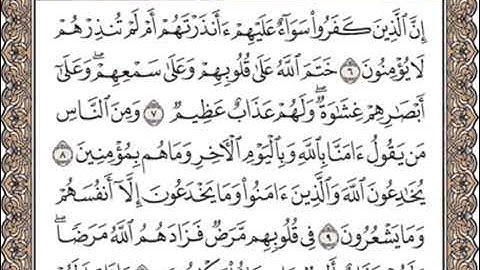 إِنَّ ٱلَّذِينَ كَفَرُوا۟ سَوَآءٌ عَلَيْهِمْ ءَأَنذَرْتَهُمْ أَمْ لَمْ تُنذِرْهُمْ
لَا يُؤْمِنُونَ ٦ خَتَمَ ٱللَّهُ عَلَىٰ قُلُوبِهِمْ وَعَلَىٰ سَمْعِهِمْ ۖ وَعَلَىٰٓ
أَبْصَٰرِهِمْ غِشَٰوَةٌ ۖ وَلَهُمْ عَذَابٌ عَظِيمٌ ٧ وَمِنَ ٱلنَّاسِ
مَن يَقُولُ ءَامَنَّا بِٱللَّهِ وَبِٱلْيَوْمِ ٱلْءَاخِرِ وَمَا هُم بِمُؤْمِنِينَ ٨
يُخَٰدِعُونَ ٱللَّهَ وَٱلَّذِينَ ءَامَنُوا۟ وَمَا يَخْدَعُونَ إِلَّآ أَنفُسَهُمْ
وَمَا يَشْعُرُونَ ٩ فِى قُلُوبِهِم مَّرَضٌ فَزَادَهُمُ ٱللَّهُ مَرَضًا ۖ